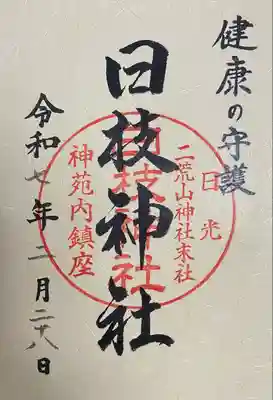 健康の守護
日枝神社
日光
二荒山神社末社
日枝神社
神苑内鎮座
令和七年二月二十八日